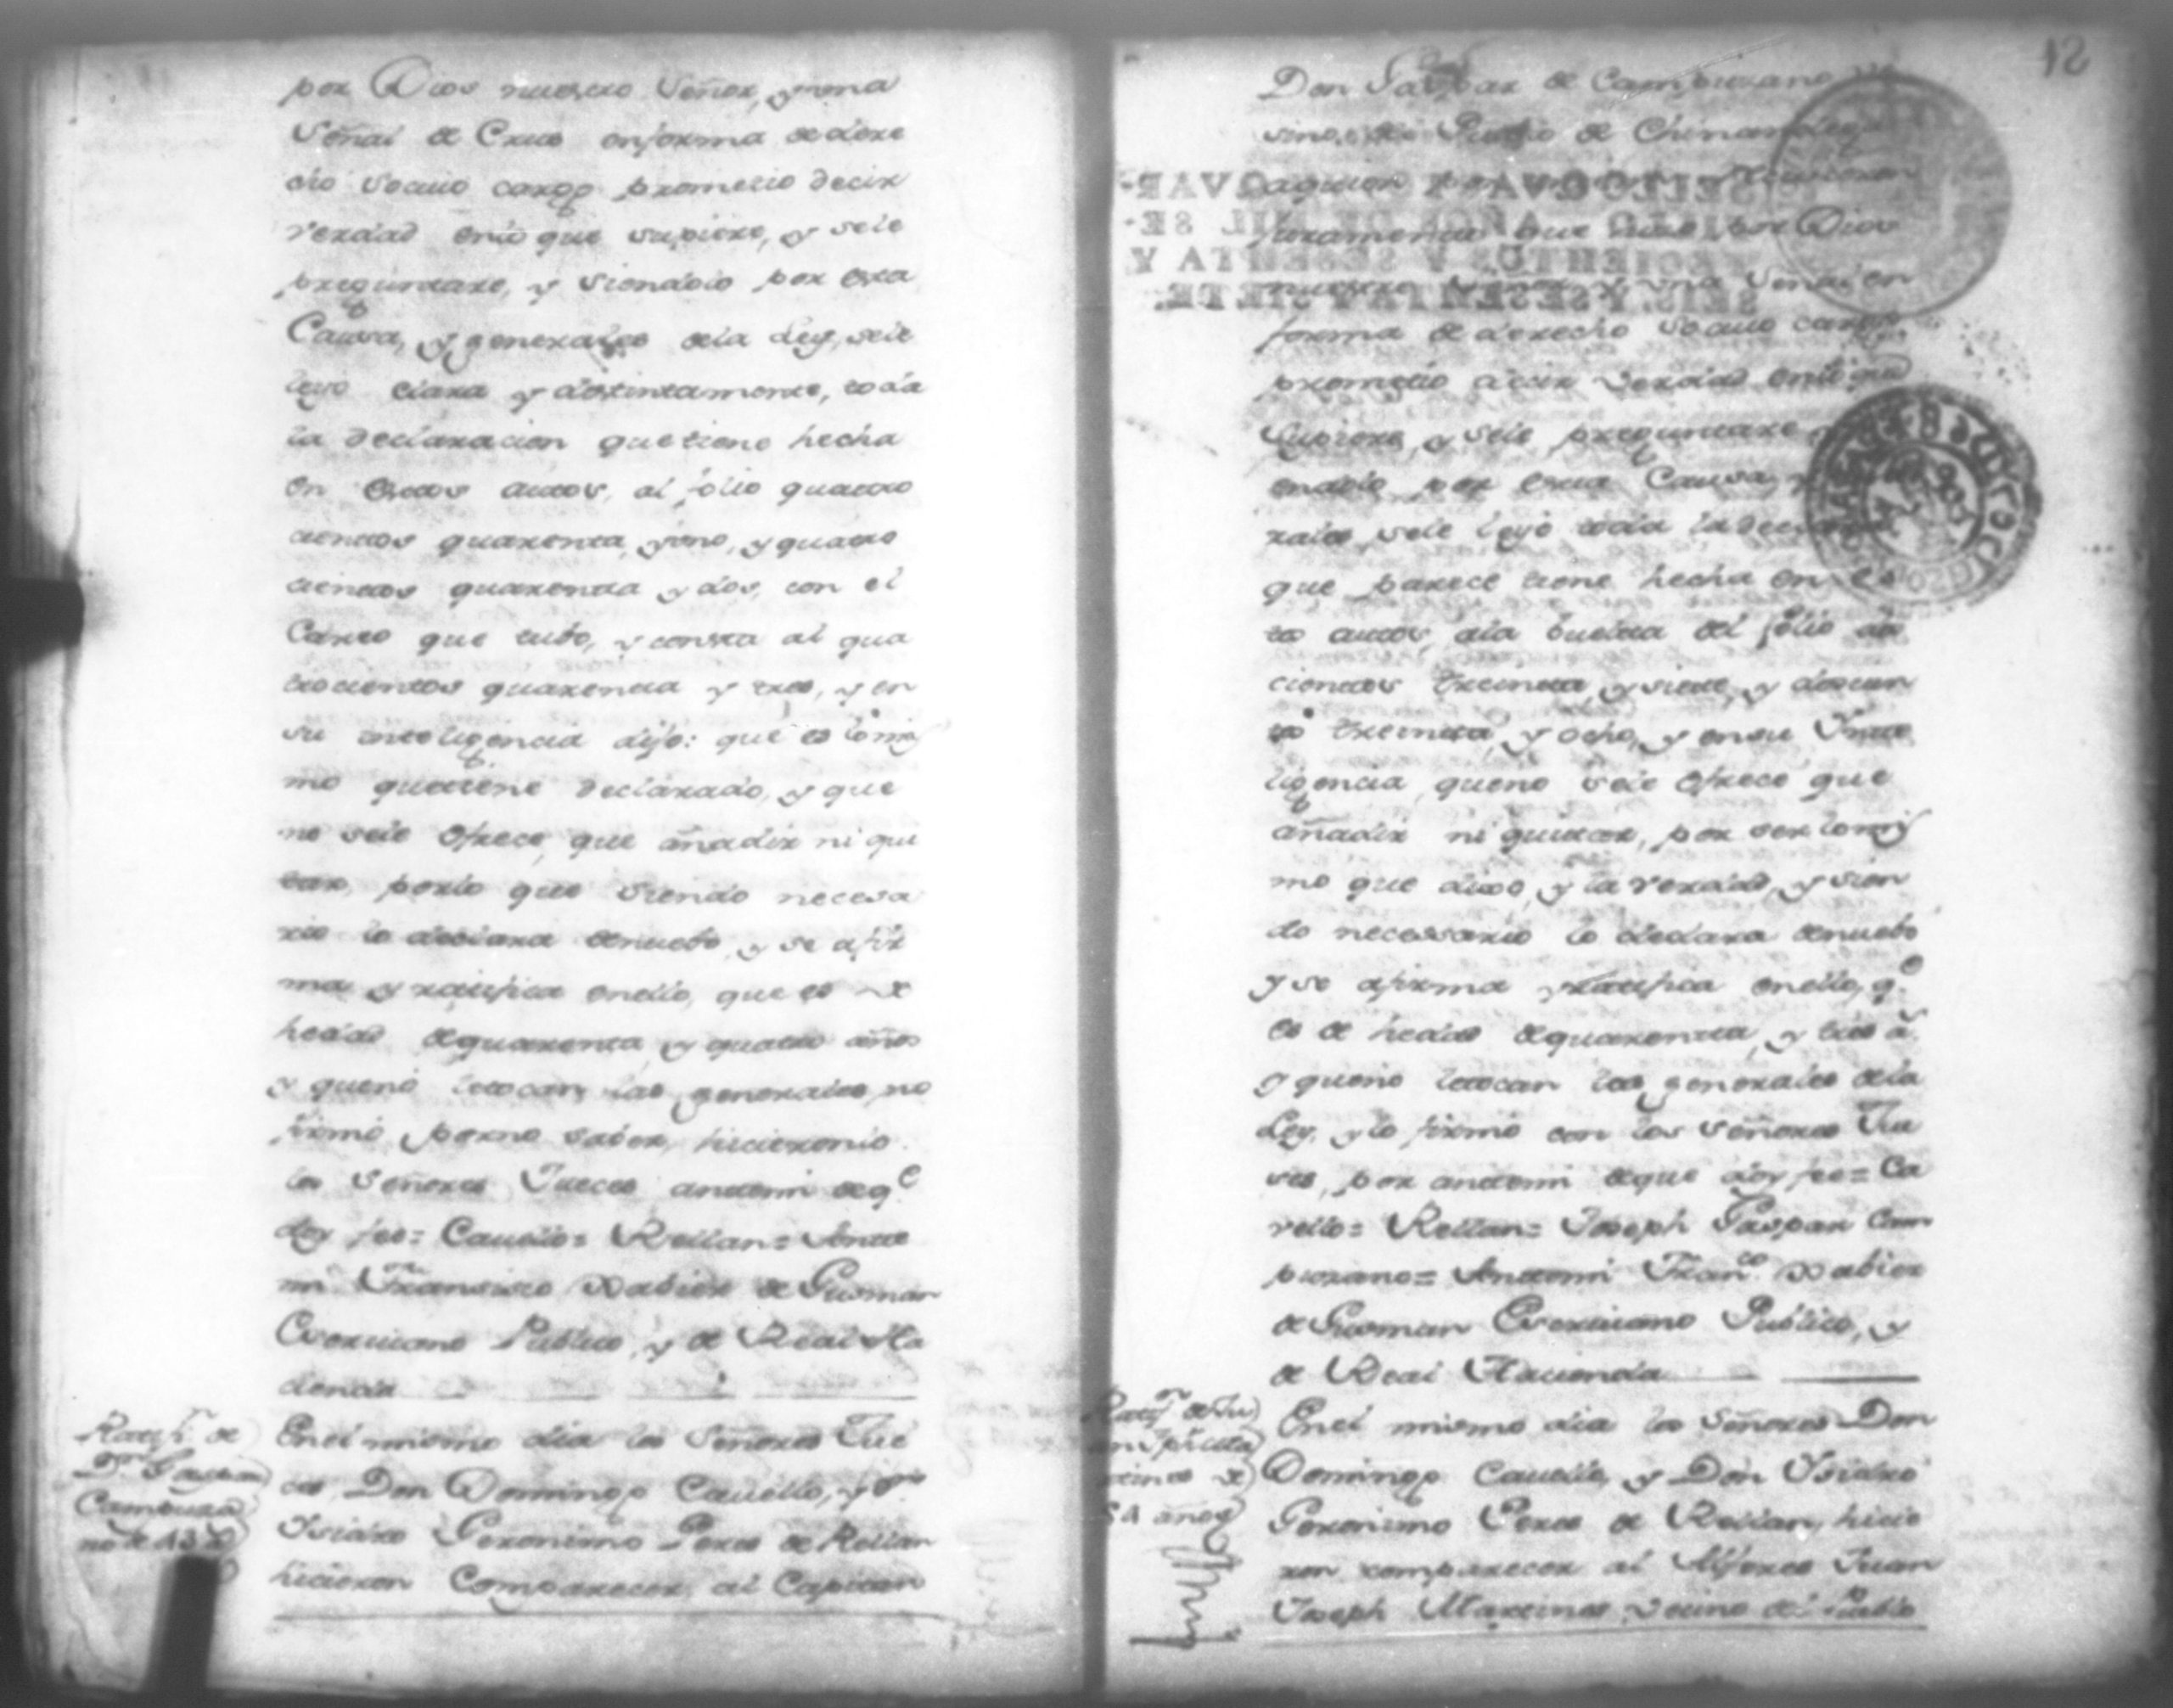 por Dios nuestro Señor, y una
Señal de Cruz en forma de dere
cho so cuio cargo prometio decir
verdad en lo que supiere, y se le
preguntare, y siendolo por esta
Causa, y generales de la Ley, se le
leyo clara y distintamente, toda
la declaracion que tiene hecha
en estos autos, al folio quatro
cientos quarenta, y uno, y quatro
cientos quarenta y dos, con el
Careo que tubo, y consta al qua
trocientos quarenta y tres, y en
su inteligencia dijo: que es lo mis
mo que tiene declarado, y que
no se le ofrece, que añadir ni qui
tar, por lo que siendo necesa
rio lo declara de nuebo, y se afir
ma y ratifica en ello, que es de
hedad de quarenta y quatro años
y que no le tocan las generales, no
firmó por no saber, hicieronlo
los Señores Jueces ante mi de q.e
doy fee= Cauello= Rellan= Ante
mi Francisco Xabier de Gusman
Escriuano Publico, y de Real Ha
cienda
Ratif.n de
D.n Gaspar
Campuza
no de 43 a
En el mismo dia los Señores Jue
ces, Don Domingo Cauello, y D.n
Isidro Geronimo Peres de Rellan
hicieron Comparecer al Capitan
12
Don Gaspar de Campuzano ve
sino del Pueblo de Chinandega
a quien
juramento que hizo por Dios
nuestro Señor y una Señal en
forma de derecho so cuio cargo
prometio decir verdad en lo que
supiere, y se le preguntare
endolo por esta Causa, y
rales, se le leyó toda la decla
que parece tiene hecha en es
tos autos, a la buelta del folio dos
cientos treinta, y siete, y doscien
tos treinta, y ocho, y en su Inte
ligencia que no se le ofrece que
añadir ni quitar, por ser lo mis
mo que dixo, y la verdad, y sien
do necessario lo declara de nuebo
y se afirma y ratifica en ello, q.e
es de hedad de quarenta, y tres a.s
y que no le tocan las generales de la
Ley, y lo firmó con los Señores Jue
ses, por ante mi de que doy fee= Ca
vello= Rellan= Joseph Gaspar Cam
puzano= Ante mi Fran.co Xabier
de Gusman Escriuano Publico, y
de Real Hacienda
Ratif.n de Ju
an Jph Mar
tines de
54 años
En el mismo dia los Señores Don
Domingo Cauello, y Don Isidro
Geronimo Peres de Rellan, hicie
ron comparecer al Alferes Juan
Joseph Martines, vecino del Pueblo
SELLO QVARTO, VN QVAR-
TILLO, AÑOS DE MIL SE-
TECIENTOS Y SESENTA Y
SEIS, Y SESENTA Y SIETE.